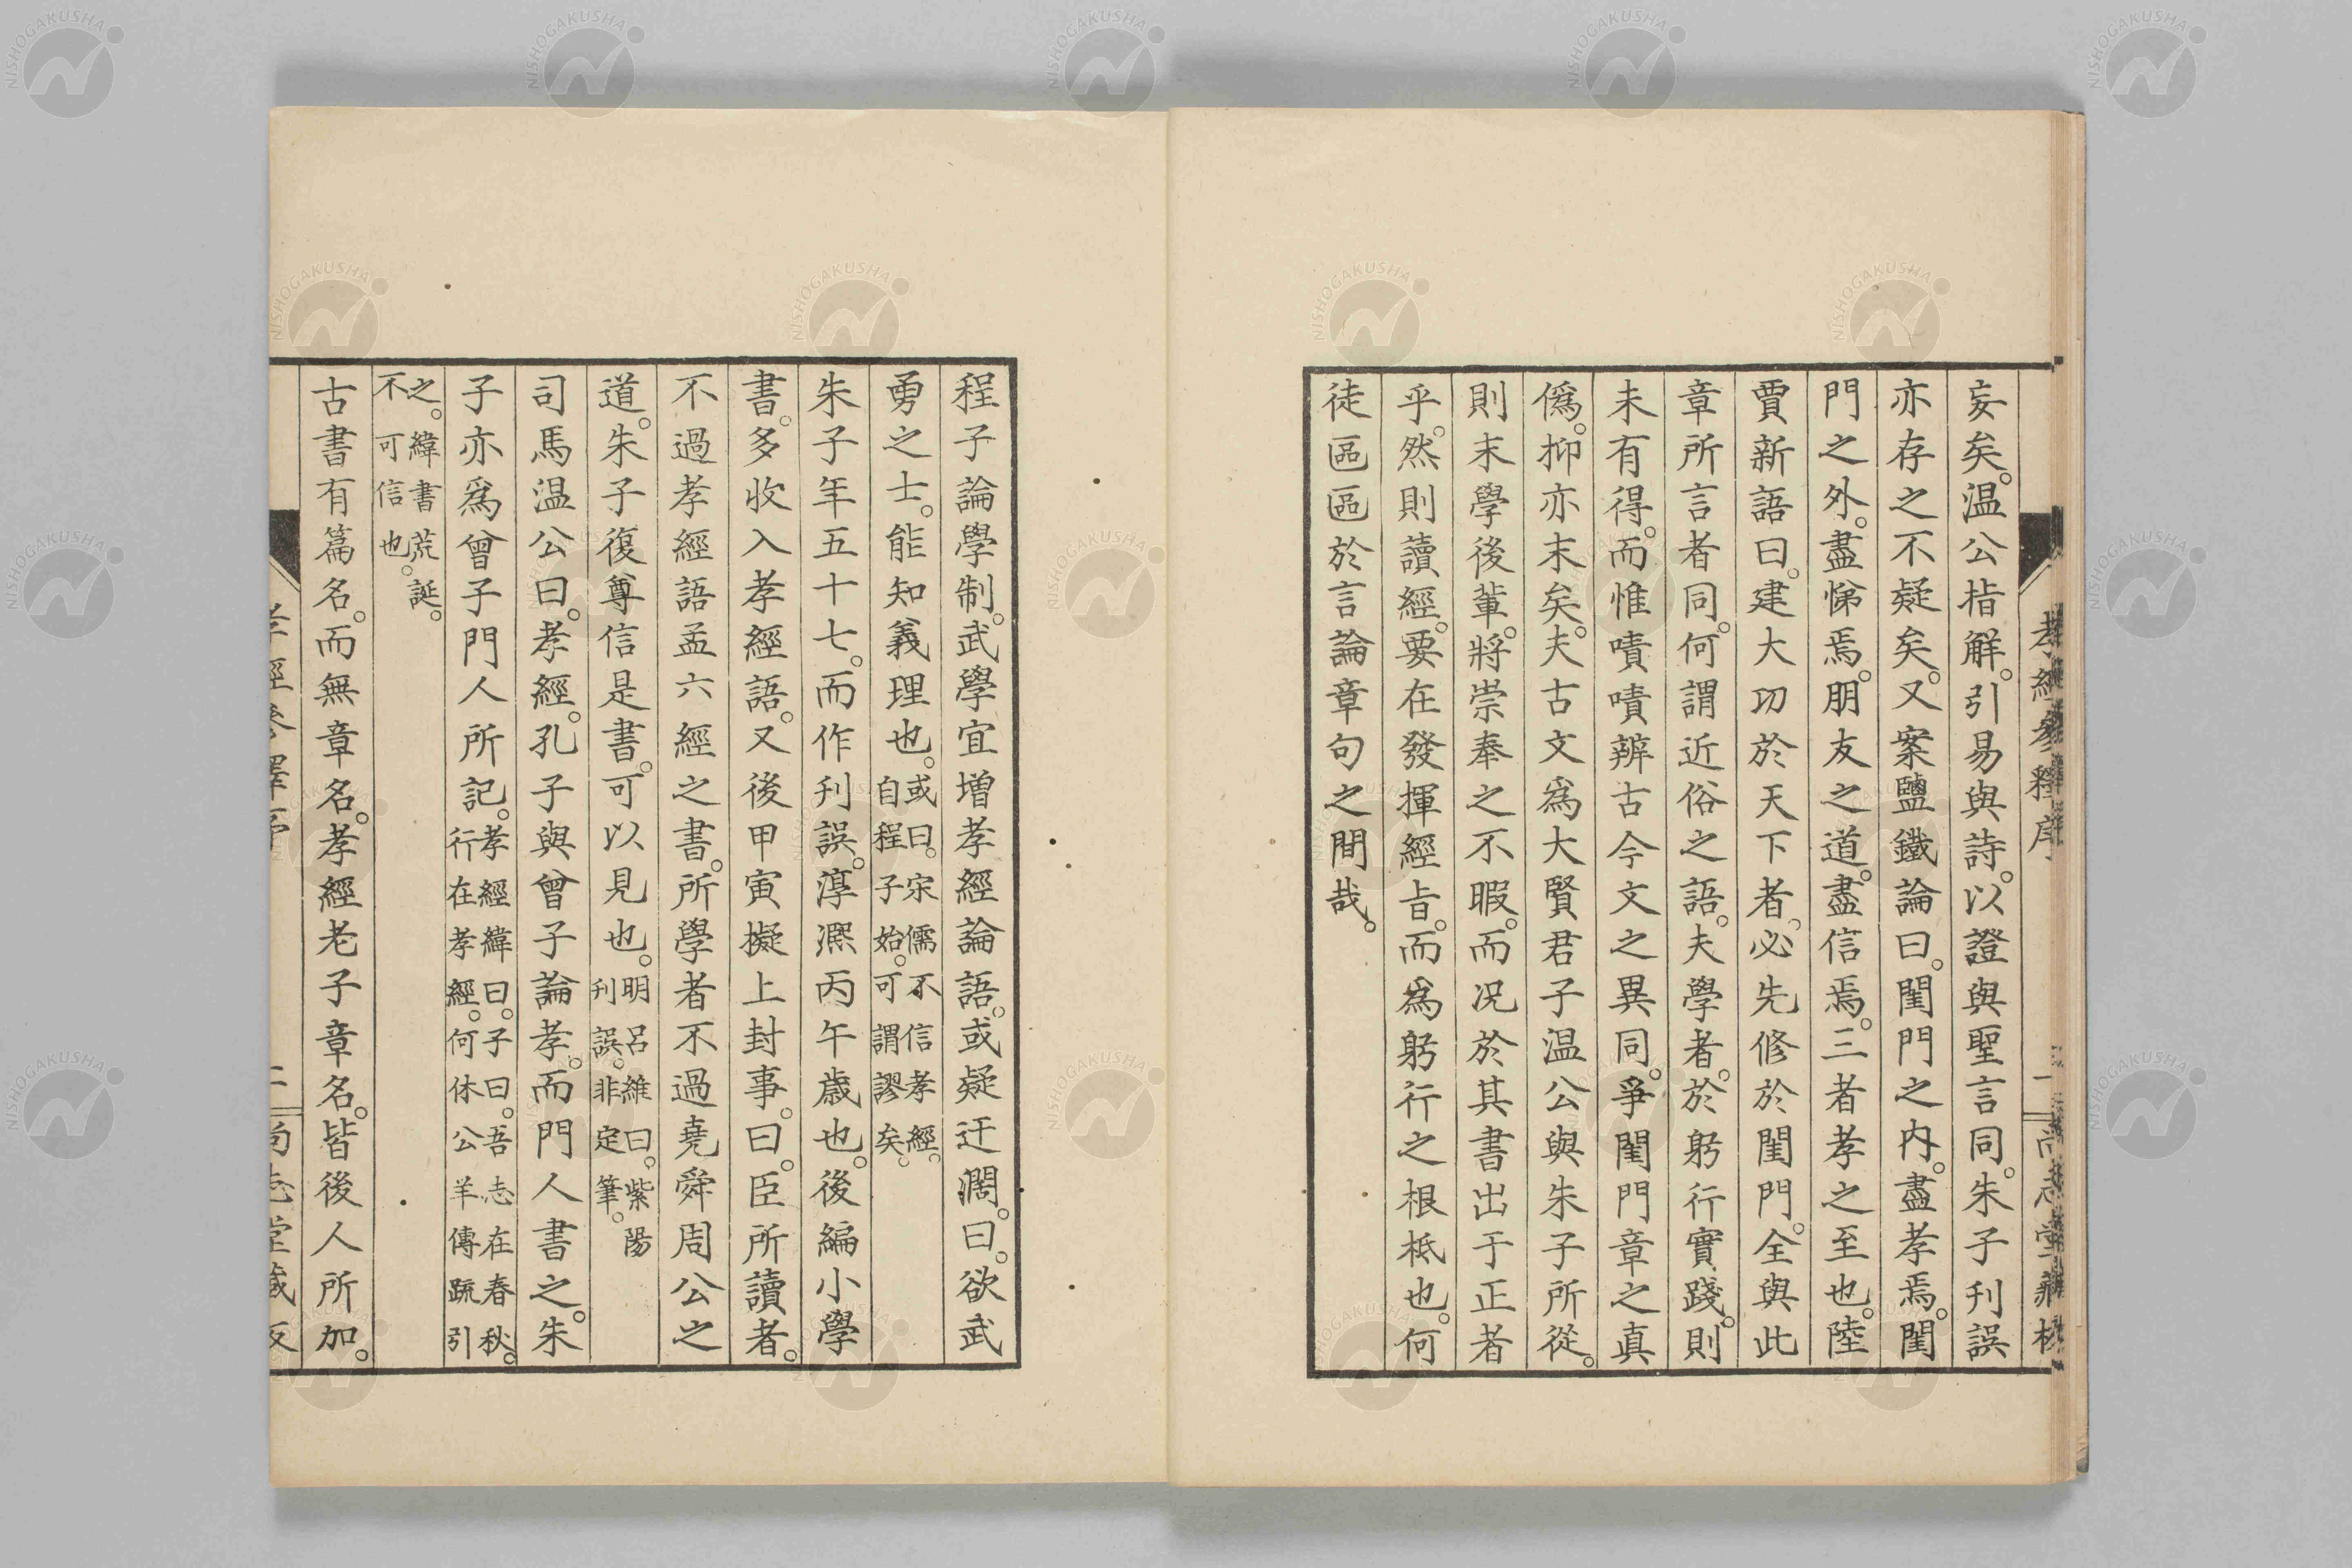 妄矣。温公指解。引易與詩。以證與聖言同。朱子刋誤
亦存之不疑矣。又案鹽鐵論曰。閨門之内。盡孝焉。閨
門之外。盡悌焉。朋友之道。盡信焉。三者孝之至也。陸
賈新語曰。建大功於天下者。必先修於閨門。全與此
章所言者同。何謂近俗之語。夫學者。於躬行實踐。則
未有得。而惟嘖嘖辨古今文之異同。爭閨門章之真
僞。抑亦末矣。夫古文爲大賢君子温公與朱子所從。
則末學後輩。將崇奉之不暇。而况於其書出于正者
乎。然則讀經。要在發揮經旨。而爲躬行之根柢也。何
徒區區於言論章句之間哉。
孝經參釋序
尚志堂藏板
程子論學制。武學宜増孝經論語。或疑迂濶。曰。欲武
勇之士。能知義理也。或曰。宋儒不信孝經。
自程子始。可謂謬矣。
朱子年五十七。而作刋誤。淳熈丙午歳也。後編小學
書。多收入孝經語。又後甲寅擬上封事。曰。臣所讀者。
不過孝經語孟六經之書。所學者不過堯舜周公之
道。朱子復尊信是書。可以見也。明呂維曰。紫陽
刋誤。非定筆。
司馬温公曰。孝經。孔子與曾子論孝。而門人書之。朱
子亦爲曾子門人所記。孝經緯曰。子曰。吾志在春秋。
行在孝經。何休公羊傳疏引
之。緯書荒誕。
不可信也。
古書有篇名。而無章名。孝經老子章名。皆後人所加。
孝經參釋序 二 尚志堂藏板
NISHOGAKUSHA